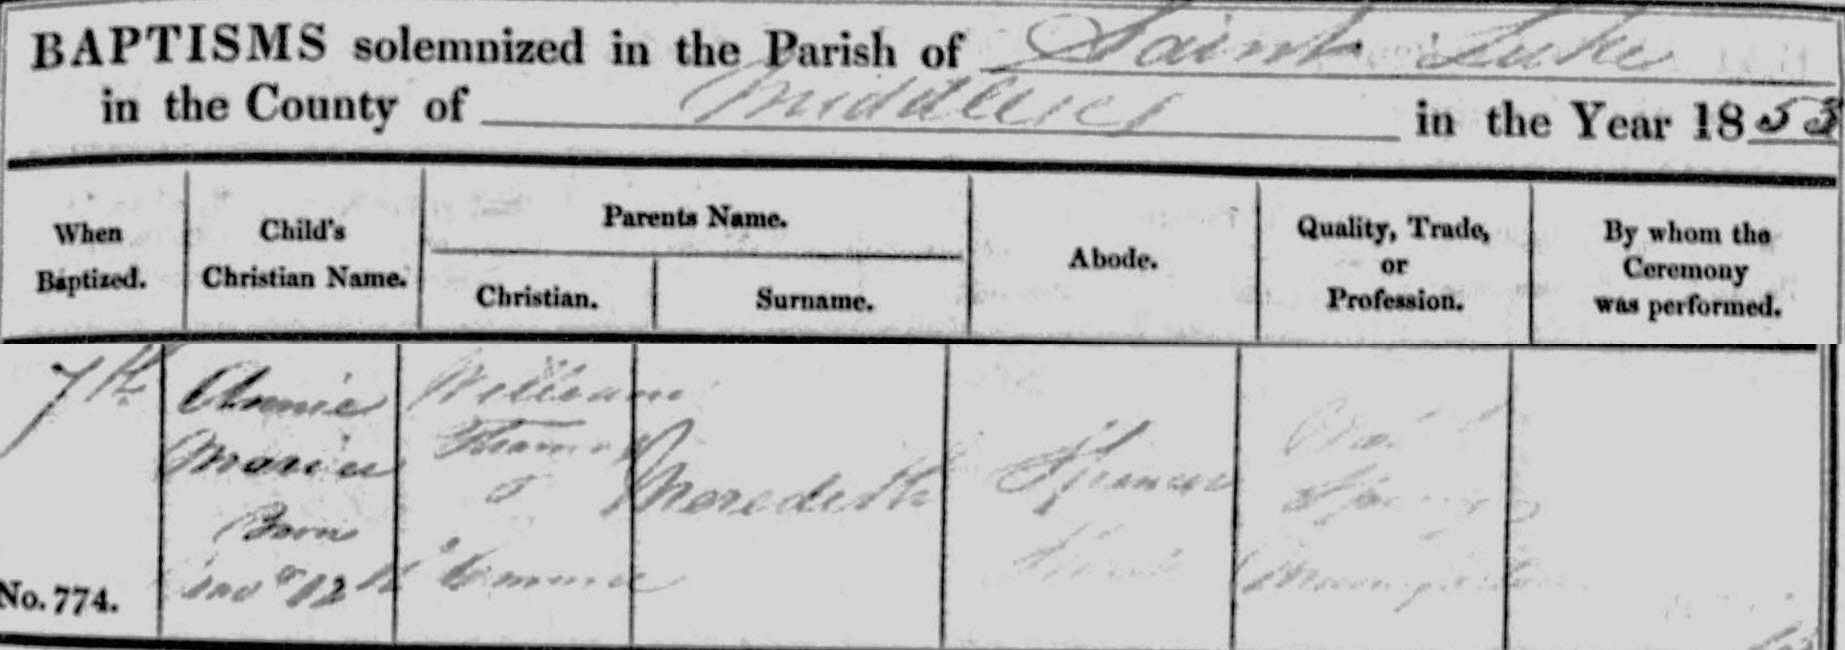 BAPTISMS solemnized in the Parish of Saint Luke
in the County of Middlesex in the Year 1853
When Baptized.
Child's Christian Name.
Parents Name.
Christian.
Surname.
Abode.
Quality, Trade, or Profession.
By whom the Ceremony was performed.
7th
Annie
Maria
Born
Novr 12th
William
Thomas
&
Meredith
Spencer
No. 774.